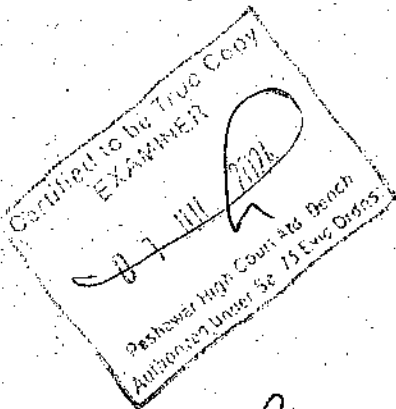 Certified to be True Copy
EXAMINER
07 JUL
Peshawar High Court Atd Bench
Authorized Under Se 75 Evid Ordns